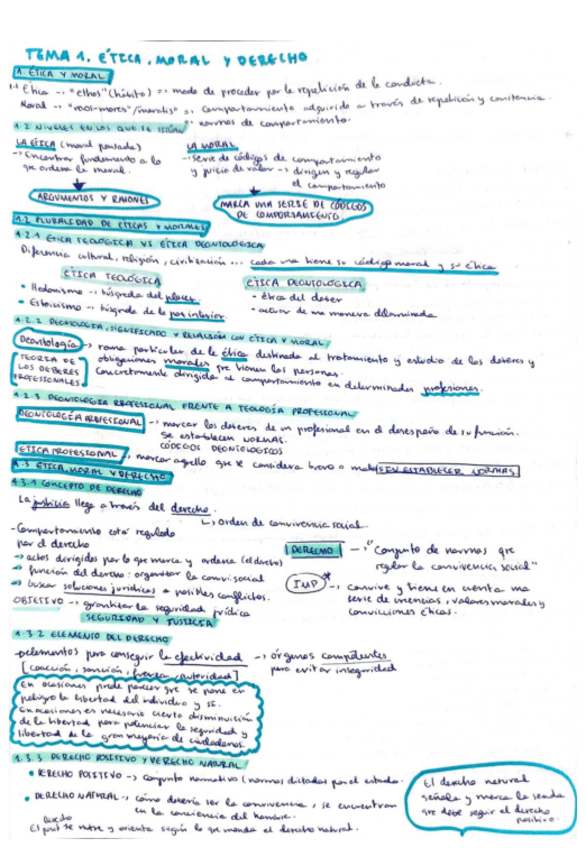 TEMA 1. ÉTICA, MORAL Y DERECHO
1. ÉTICA Y MORAL
1.1 Ética → "ethos" (hábito) =: modo de proceder por la repetición de la conducta.
Moral → "moos-mores"/"moralis" =: comportamiento adquirido a través de repetición y constancia.
normas de comportamiento.
1.2 NIVELES EN LOS QUE SE SITÚAN
LA ÉTICA (moral pensada)
→ Encontrar fundamento a lo que ordena la moral.
ARGUMENTOS Y RAZONES
LA MORAL
→ serie de códigos de comportamiento
y juicio de valor → dirigen y regulan
el comportamiento
MARCA UNA SERIE DE CÓDIGOS
DE COMPORTAMIENTO
1.2 PLURALIDAD DE ÉTICAS Y MORALES
1.2.1 ÉTICA TEOLÓGICA VS ÉTICA DEONTOLÓGICA
Diferencia cultural, religión, civilización ... cada una tiene su código moral y su ética
ÉTICA TEOLÓGICA
• Hedonismo → búsqueda del placer
• Estoicismo → búsqueda de la paz interior.
ÉTICA DEONTOLÓGICA
- ética del deber
- actuar de una manera determinada
1.2.2 DEONTOLOGÍA, SIGNIFICADO Y RELACIÓN CON ÉTICA Y MORAL
Deontología → rama particular de la ética destinada al tratamiento y estudio de los deberes y
obligaciones morales que tienen las personas.
Concretamente dirigida al comportamiento en determinadas profesiones.
TEORIA DE
LOS DEBERES
PROFESIONALES
1.2.3 DEONTOLOGIA PROFESIONAL FRENTE A TEOLOGÍA PROFESIONAL
DEONTOLOGÍA PROFESIONAL → marcar los deberes de un profesional en el desempeño de su función.
Se establecen NORMAS.
CÓDIGOS DEONTOLÓGICOS
ETICA PROFESIONAL → marcar aquello que se considera bueno o malo SIN ESTABLECER NORMAS
1.3 ÉTICA, MORAL Y DERECHO
1.3.1 CONCEPTO DE DERECHO
La justicia llega a través del derecho.
↳ orden de convivencia social
- Comportamiento está regulado
por el derecho
→ actos dirigidos por lo que marca y ordena (el derecho)
→ función del derecho: organizar la conv. social
→ buscar soluciones jurídicas a posibles conflictos.
OBJETIVO → garantizar la seguridad jurídica
SEGURIDAD Y JUSTICIA
DERECHO → "Conjunto de normas que
regulan la convivencia social"
IMP → convive y tiene en cuenta una
serie de creencias, valores morales y
convicciones éticas.
1.3.2 ELEMENTO DEL DERECHO
→ elementos para conseguir la efectividad → órganos competentes
[coacción, sanción, fuerza, autoridad]
para evitar inseguridad
En ocasiones puede parecer que se pone en
peligro la libertad del individuo y sí.
En ocasiones es necesario cierta disminución
de la libertad para potenciar la seguridad y
libertad de la gran mayoría de ciudadanos.
1.3.3 DERECHO POSITIVO Y DERECHO NATURAL
• DERECHO POSITIVO → conjunto normativo (normas dictadas por el estado.
• DERECHO NATURAL → cómo debería ser la convivencia, se encuentran
en la conciencia del hombre.
El derecho posit se nutre y orienta según lo que manda el derecho natural.
El derecho natural
señala y marca la senda
que debe seguir el derecho
positivo.